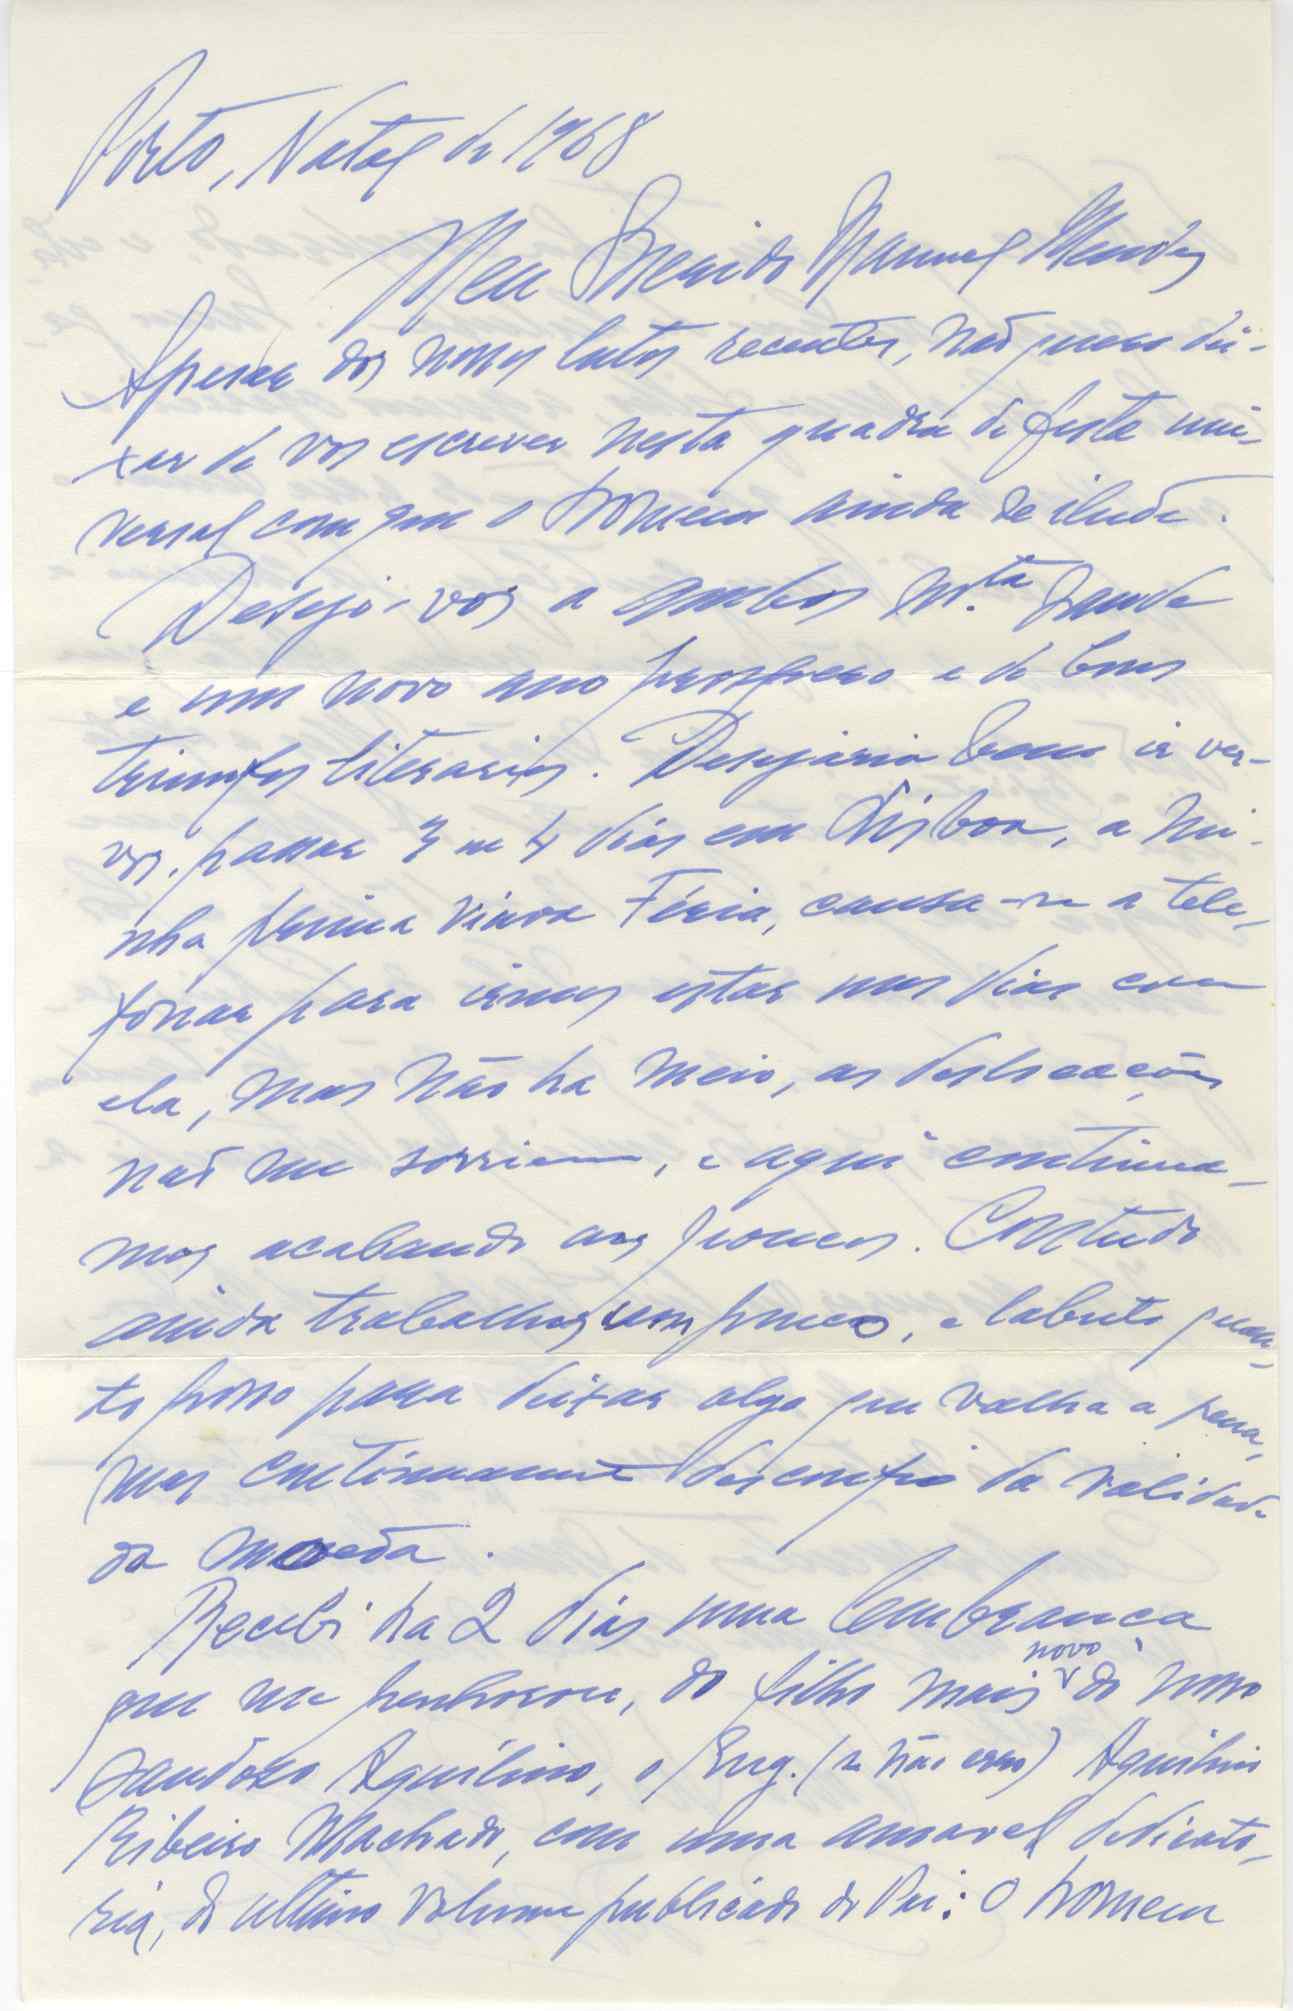 Porto, Natal de 1968
Meu Querido Manuel Mendes
Apesar dos nossos lutos recentes, não quero dei-
xar de vos escrever nesta quadra de festa uni-
versal com que o homem ainda se ilude.
Desejo-vos a ambos m.ta saude
e um novo ano prospero e de bons
triunfos literarios. Desejaria bem ir ver-
vos. passar 3 ou 4 dias em Lisboa, a mi-
nha prima viuva Féria, cansa-se a tele-
fonar para irmos estar uns dias com
ela, mas não ha meio, as deslocações
não me sorriem, e aqui continua-
mos acabando aos poucos. Contudo
ainda trabalhos um pouco, e labuto quan-
to posso para deixar algo que valha a pena,
mas continuamente desconfio da validade
da moeda.
Recebi ha 2 dias uma lembrança
que me penhorou, do filho mais novo do nosso
saudoso Aquilino, o Eng. (se não erro) Aquilino
Ribeiro Machado, com uma amavel dedicato-
ria, do ultimo volume publicado do Pai: O homem